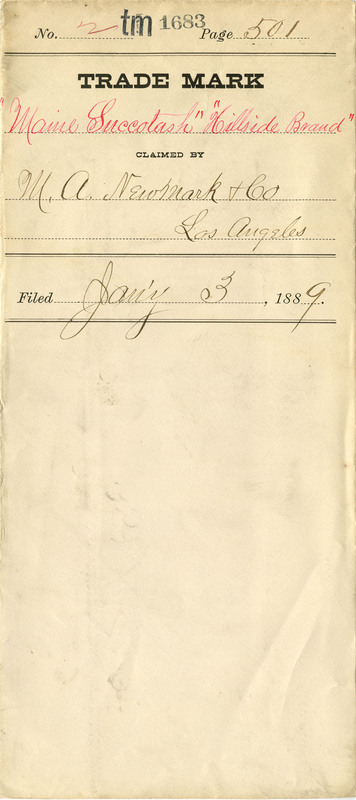 No. 2 tm 1683 Page 501
TRADE MARK
"Maine Succotash" "Hillside Brand"
CLAIMED BY
M. A. Newmark & Co
Los Angeles
Filed Jan'y 3, 1889.